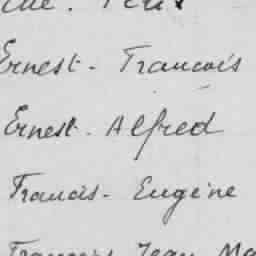 Ernest - Francois
Ernest - Alfred
Francis - Eugène
François Jean Ma